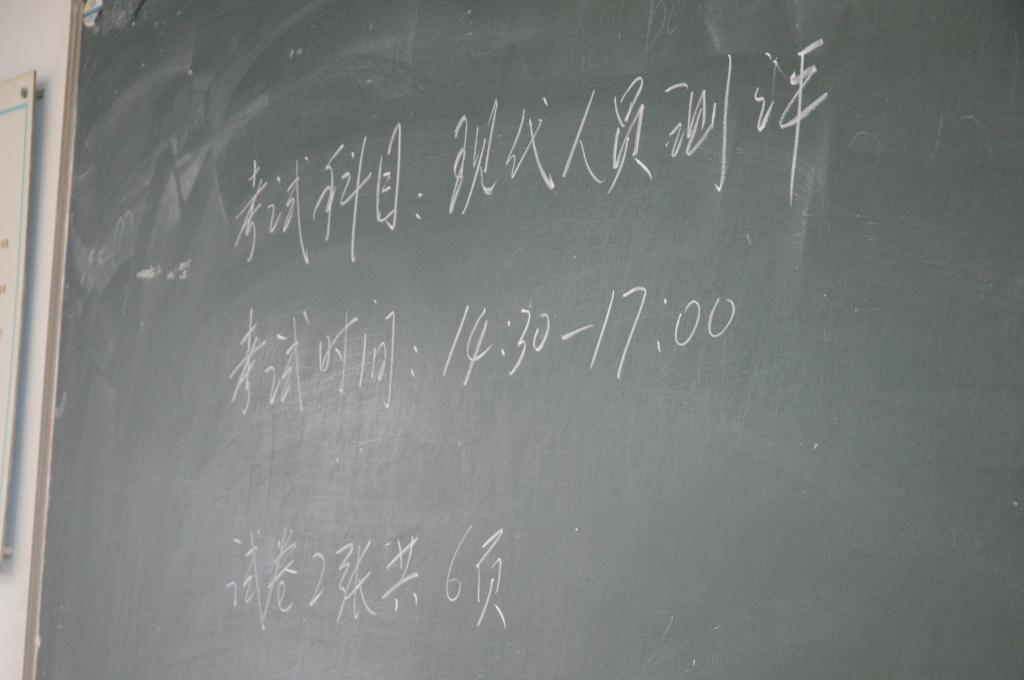 考试科目:现代人员测评
考试时间:14:30-17:00
试卷2张共6页